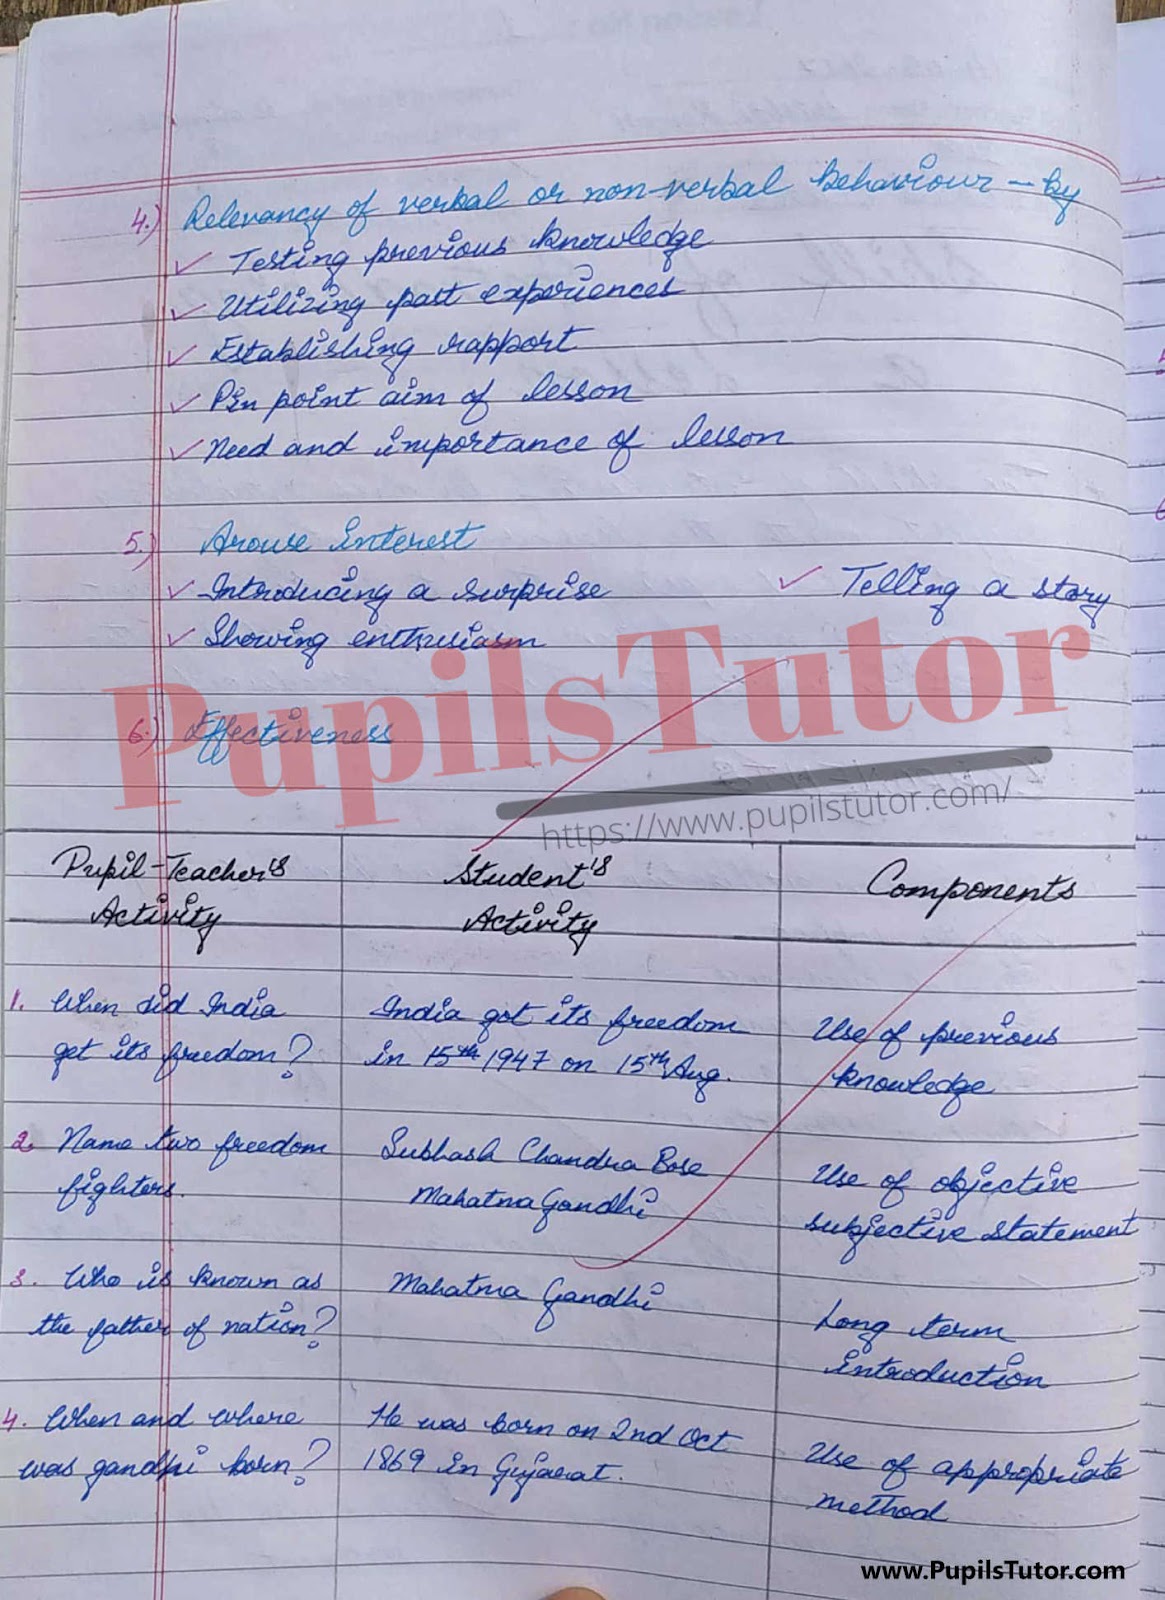 4.) Relevancy of verbal or non-verbal behaviour - by
✓ Testing previous knowledge
✓ Utilizing past experiences
✓ Establishing rapport
✓ Pin point aim of lesson
✓ Need and importance of lesson
5.) Arouse interest
✓ Introducing a surprise ✓ Telling a story
✓ Showing enthusiasm
6.) Effectiveness
PupilsTutor
https://www.pupilstutor.com/
Pupil-Teacher's Activity | Student's Activity | Components
1. When did India | India got its freedom | Use of previous
get its freedom? | in 15th 1947 on 15th Aug. | knowledge
2. Name two freedom | Subhash Chandra Bose | Use of objective
fighters. | Mahatma Gandhi | subjective statement
3. Who is known as | Mahatma Gandhi | Long term
the father of nation? | introduction
4. When and where | He was born on 2nd Oct | Use of appropriate
was gandhi born? | 1869 in Gujarat. | method
www.PupilsTutor.com